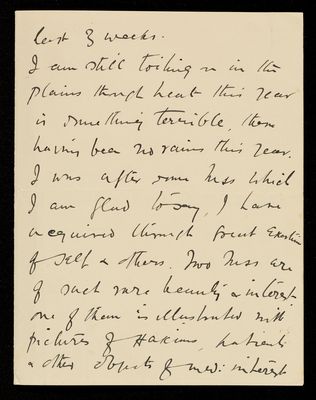 last 3 weeks.
I am still toiling on in the
plains though heat this year
is something terrible, there
having been no rains this year.
I was after some mss which
I am glad to say, I have
acquired through great exertion
of self & others. Two mss are
of such rare beauty & interest
one of them is illustrated with
pictures of Hakims, patients
& other objects of med: interest